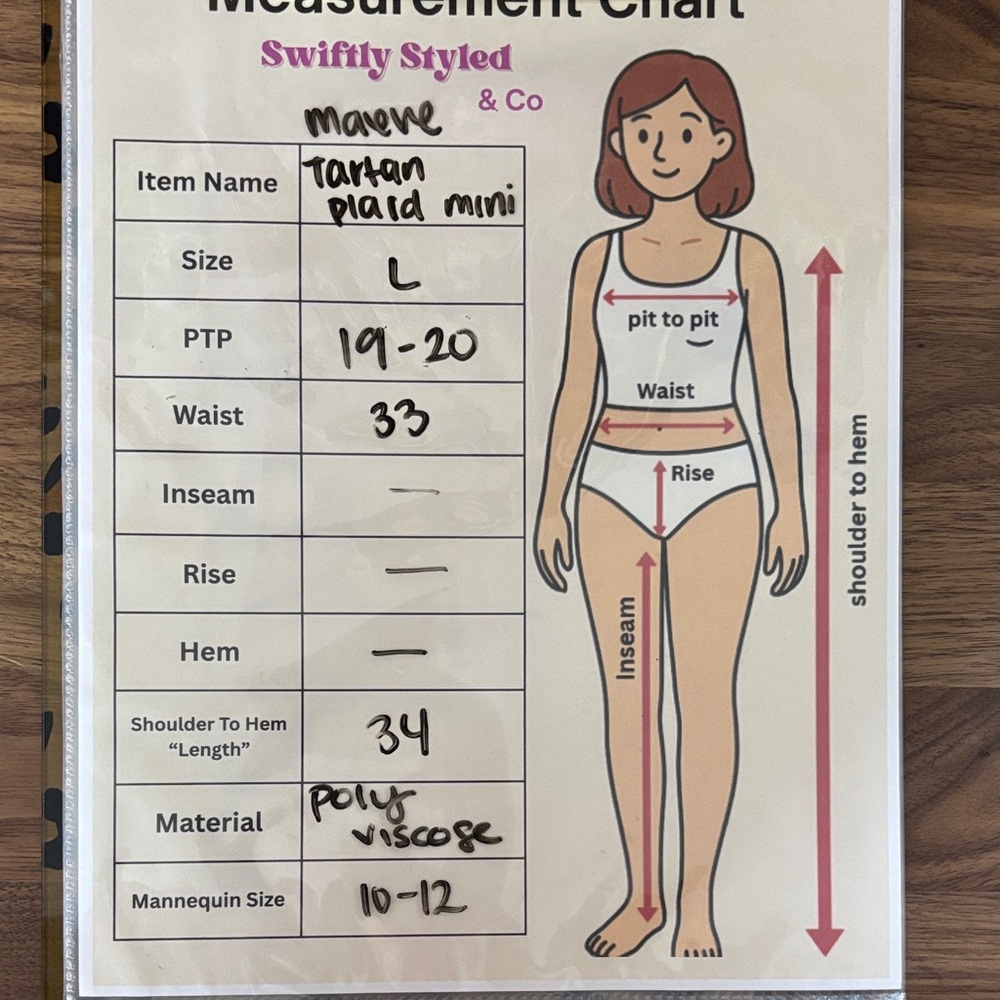 Measurement Chart
Swiftly Styled
& Co
maeve
Item Name
Tartan
plaid mini
Size
L
PTP
19-20
Waist
33
Inseam
—
Rise
—
Hem
—
Shoulder To Hem
“Length”
34
Material
poly
viscose
Mannequin Size
10-12
pit to pit
Waist
Rise
Inseam
shoulder to hem